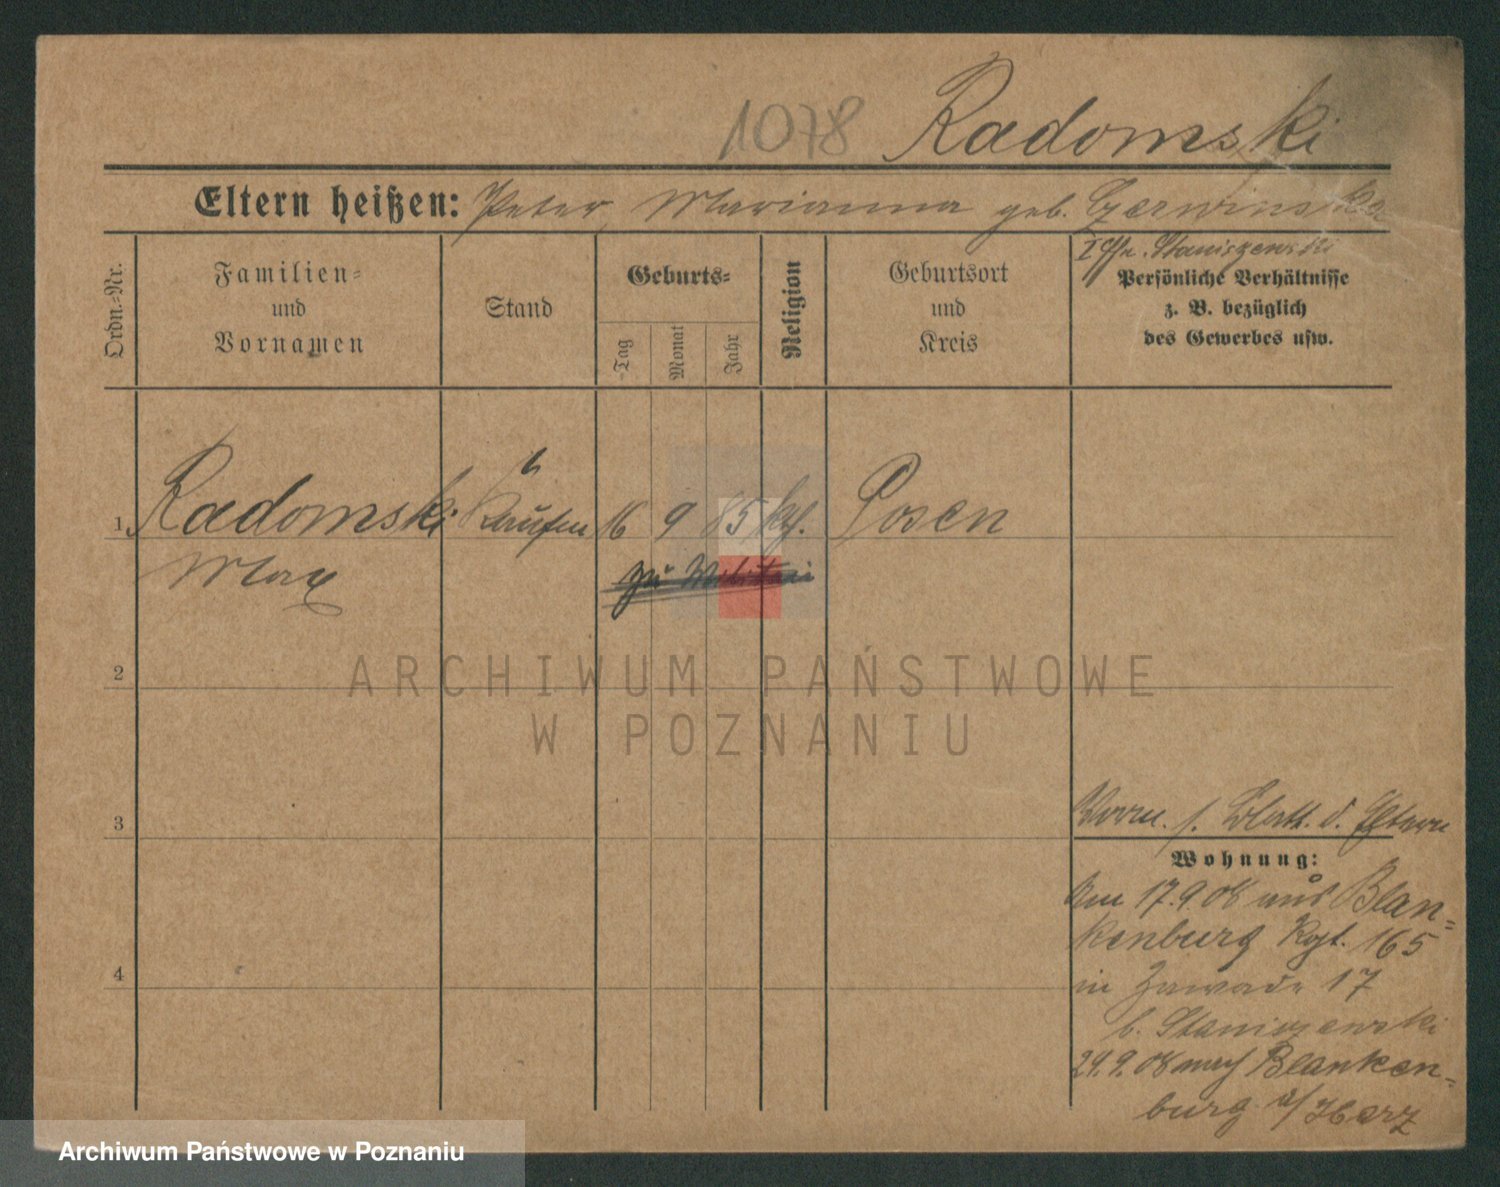 1078 Radomski
Eltern heißen: Peter, Marianna geb. Czerwinska
Staniszewski
Ordn.-Nr.
Familien-
und
Vornamen
Stand
Geburts-
Tag
Monat
Jahr
Religion
Geburtsort
und
Kreis
Persönliche Verhältnisse
z. B. bezüglich
des Gewerbes usw.
1 Radomski 16 9 85 kth. Posen
Max zu Militär
2
3
4
ARCHIWUM PAŃSTWOWE
W POZNANIU
Vorm. s. Blatt. d. Eltern
Wohnung:
Am 17.9.08 aus Blan-
kenburg Rgt. 165
in Zawade 17
b. Staniszewski
29.9.08 nach Blanken-
burg a/Harz
Archiwum Państwowe w Poznaniu